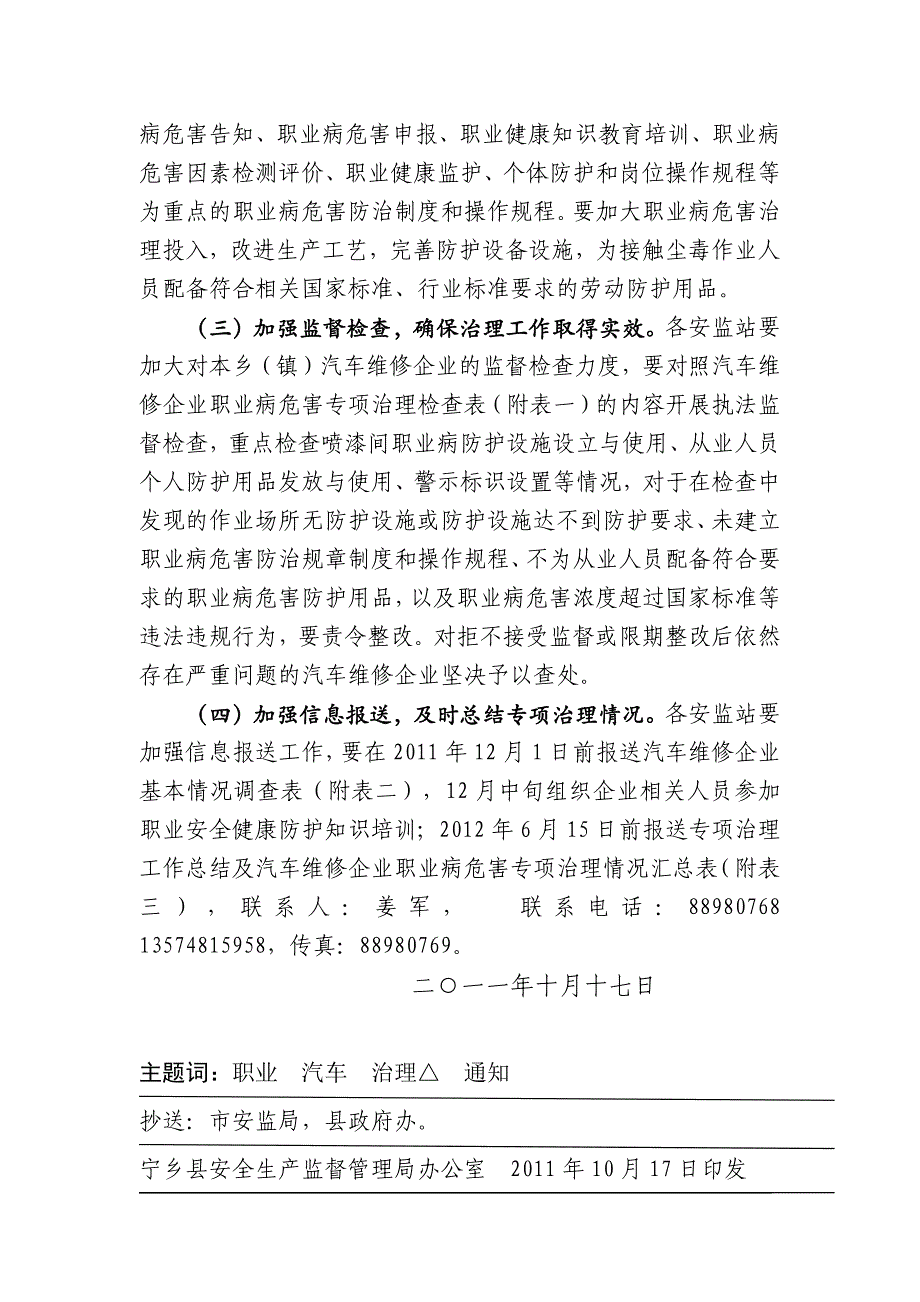 病危害告知、职业病危害申报、职业健康知识教育培训、职业病
危害因素检测评价、职业健康监护、个体防护和岗位操作规程等
为重点的职业病危害防治制度和操作规程。要加大职业病危害治
理投入，改进生产工艺，完善防护设备设施，为接触尘毒作业人
员配备符合相关国家标准、行业标准要求的劳动防护用品。
（三）加强监督检查，确保治理工作取得实效。各安监站要
加大对本乡（镇）汽车维修企业的监督检查力度，要对照汽车维
修企业职业病危害专项治理检查表（附表一）的内容开展执法监
督检查，重点检查喷漆间职业病防护设施设立与使用、从业人员
个人防护用品发放与使用、警示标识设置等情况，对于在检查中
发现的作业场所无防护设施或防护设施达不到防护要求、未建立
职业病危害防治规章制度和操作规程、不为从业人员配备符合要
求的职业病危害防护用品，以及职业病危害浓度超过国家标准等
违法违规行为，要责令整改。对拒不接受监督或限期整改后依然
存在严重问题的汽车维修企业坚决予以查处。
（四）加强信息报送，及时总结专项治理情况。各安监站要
加强信息报送工作，要在 2011 年 12 月 1 日前报送汽车维修企业
基本情况调查表（附表二），12 月中旬组织企业相关人员参加
职业安全健康防护知识培训；2012 年 6 月 15 日前报送专项治理
工作总结及汽车维修企业职业病危害专项治理情况汇总表（附表
三），联系人：姜军，　联系电话：88980768
13574815958，传真：88980769。
二〇一一年十月十七日
主题词：职业　汽车　治理△　通知
抄送：市安监局，县政府办。
宁乡县安全生产监督管理局办公室　2011 年 10 月 17 日印发